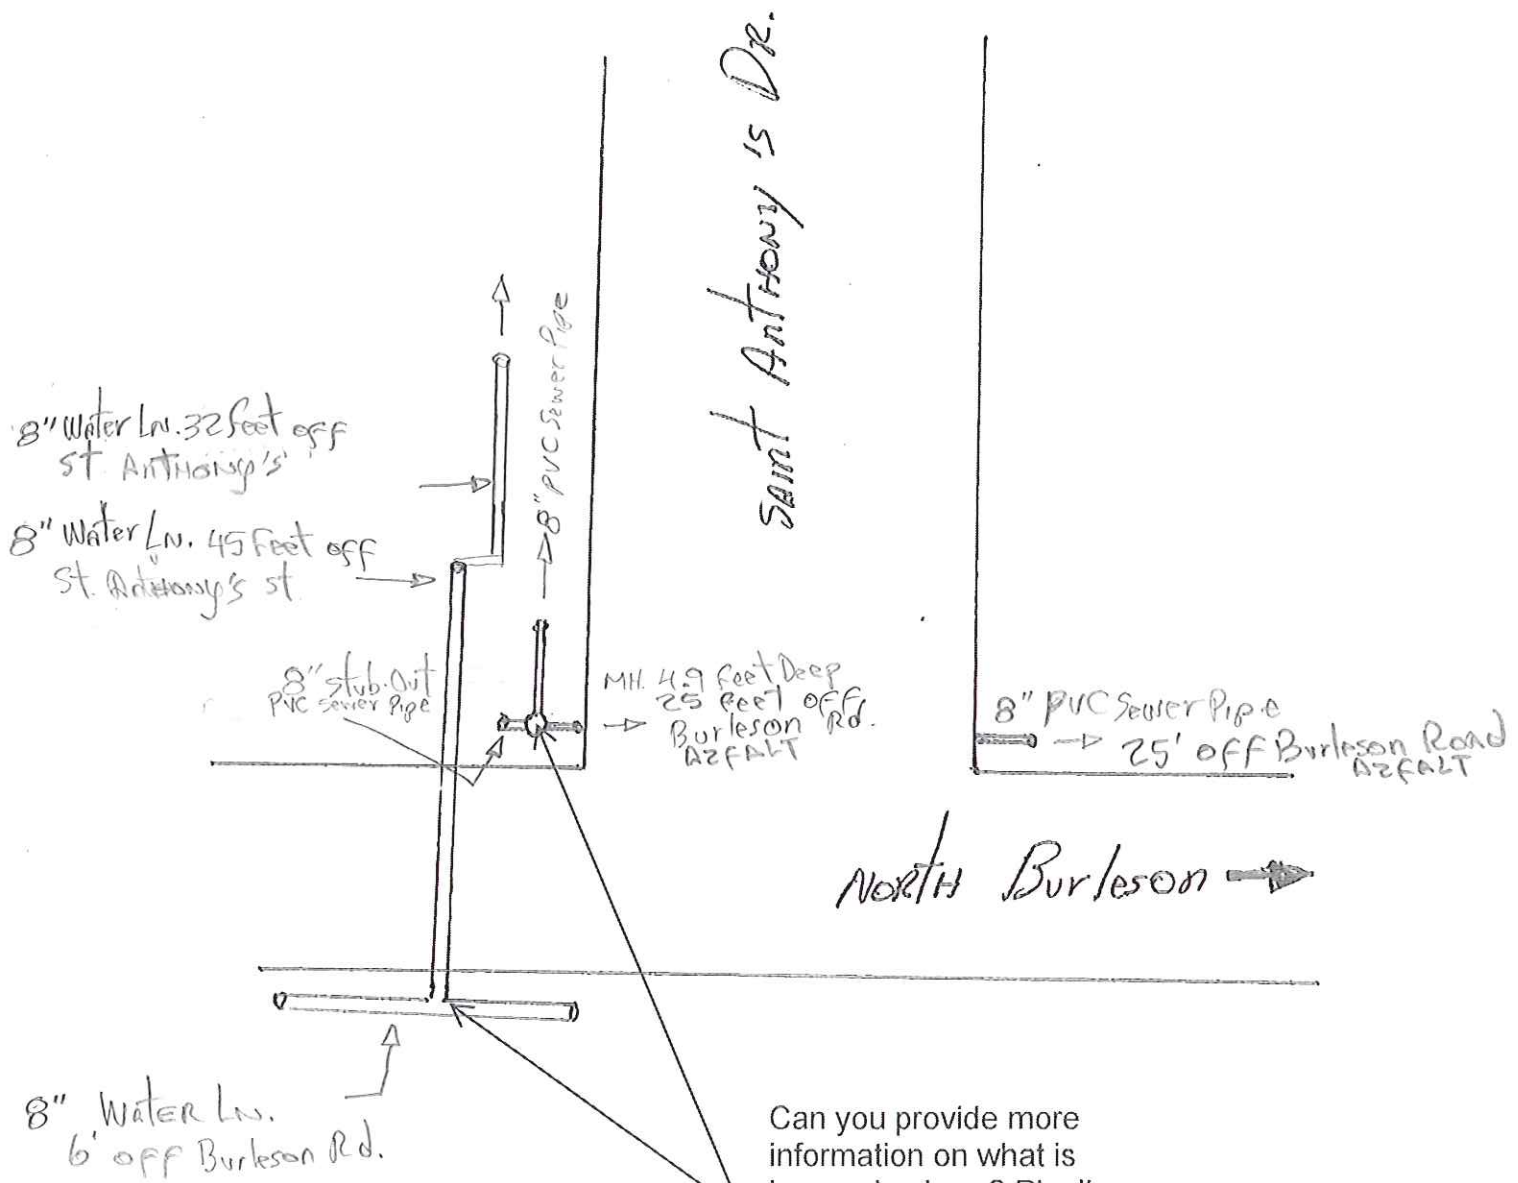 SAINT ANTHONY IS DR.
8" PVC Sewer Pipe
8" Water Ln. 32 feet off
St. ANTHONY'S
8" Water Ln. 45 feet off
St. Anthony's st
8" stub-Out
PVC Sewer Pipe
MH. 4.9 feet Deep
25 feet OFF
Burleson Rd.
AZFALT
8" PVC Sewer Pipe
25' OFF Burleson Road
AZFALT
NORTH Burleson
8" WATER LN.
6' OFF Burleson Rd.
Can you provide more
information on what is